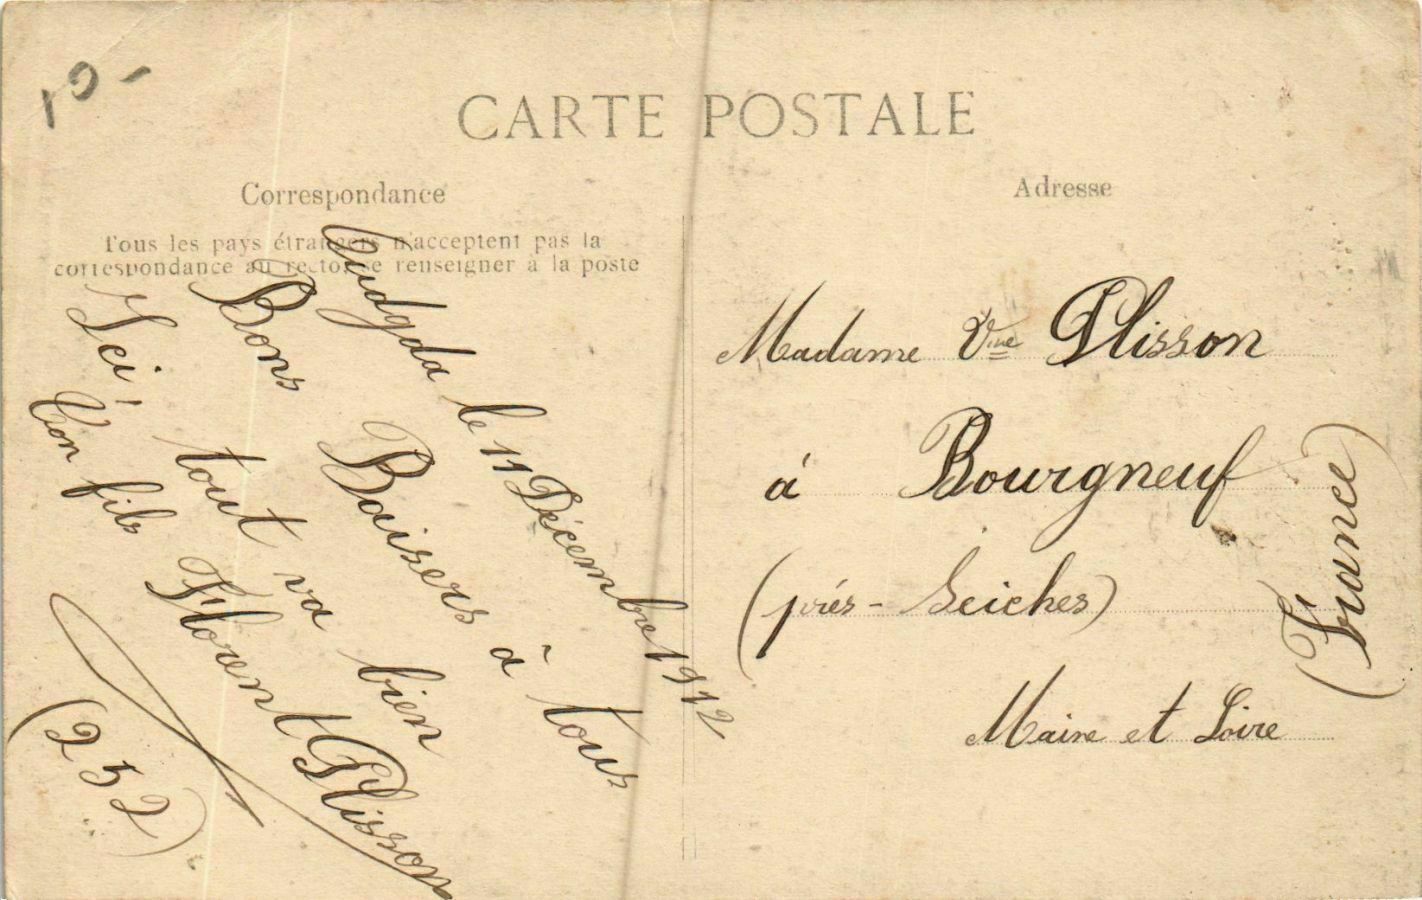 10 -
CARTE POSTALE
Correspondance
Tous les pays étrangers n'acceptent pas la
correspondance au recto, se renseigner à la poste
Oudgda le 11 Décembre 1912
Bons Baisers à tous
Ici! tout va bien
Ton fils Florent Plisson
(252)
Adresse
Madame Vve Plisson
à Bourgneuf
(près - Seiches)
Maine et Loire
(France)